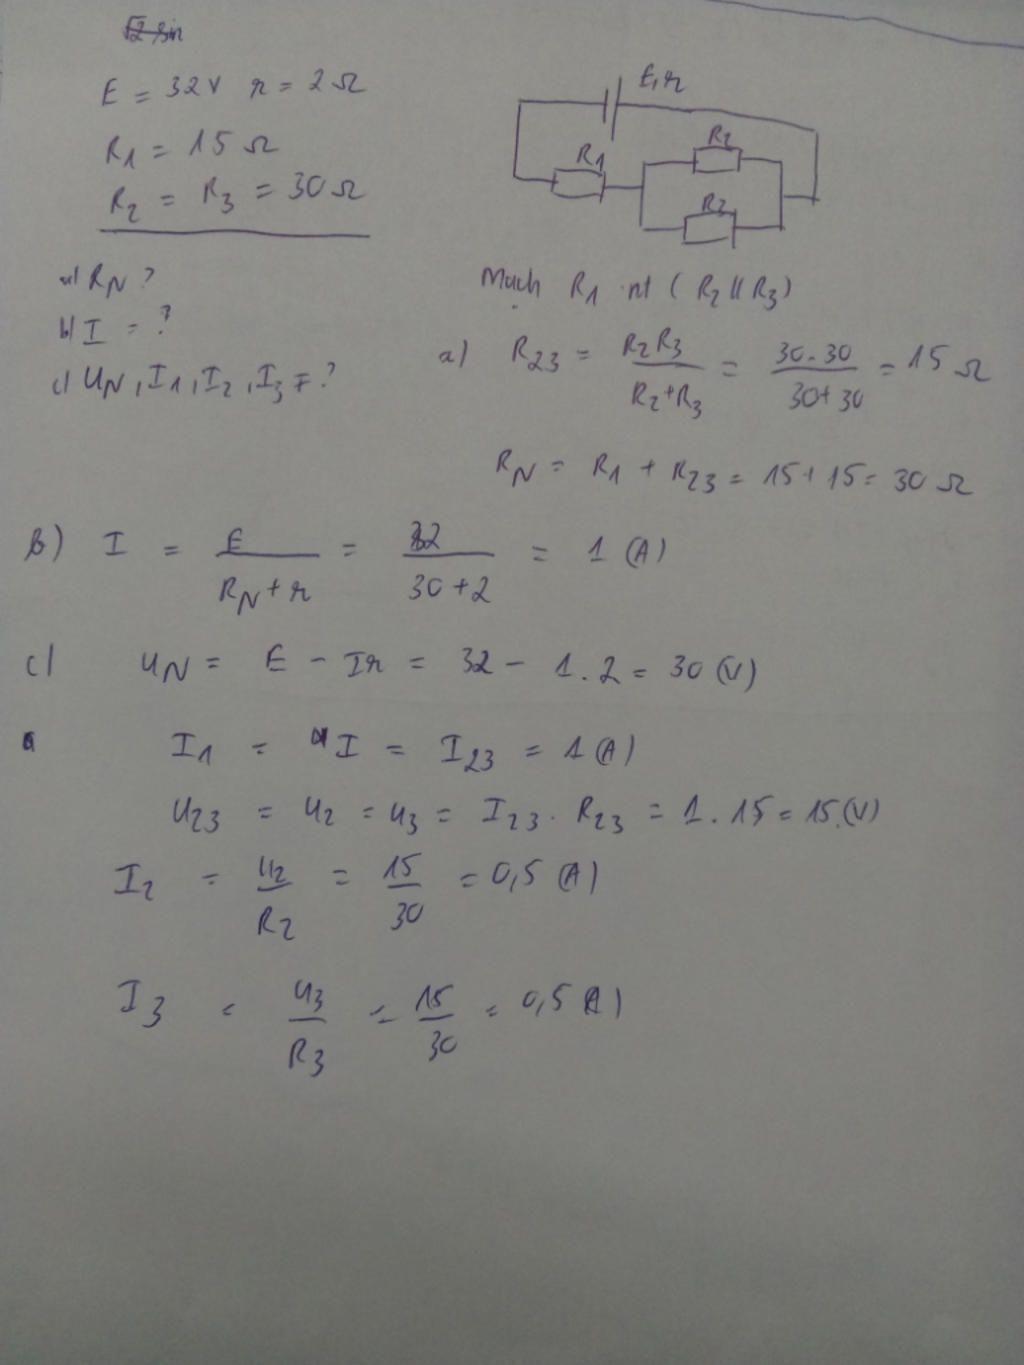 √2 sin
E = 32V r = 2Ω
R1 = 15Ω
R2 = R3 = 30Ω
a) RN ?
b) I = ?
c) UN, I1, I2, I3 = ?
E, r
R1
R2
R3
Mạch R1 nt ( R2 // R3 )
a) R23 = R2R3 / R2+R3 = 30.30 / 30+30 = 15 Ω
RN = R1 + R23 = 15 + 15 = 30 Ω
b) I = E / RN + r = 32 / 30+2 = 1 (A)
c) UN = E - Ir = 32 - 1.2 = 30 (V)
I1 = I = I23 = 1 (A)
U23 = U2 = U3 = I23 . R23 = 1 . 15 = 15 (V)
I2 = U2 / R2 = 15 / 30 = 0,5 (A)
I3 = U3 / R3 = 15 / 30 = 0,5 (A)